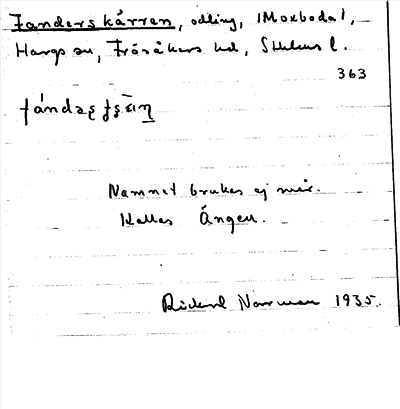 Janderskärren, odling, i Moxboda 1,
Hargs sn, Frösåkers hd, Sthlms l.
363
Namnet brukas ej mer.
Kallas Ängen.
Rickard Norrman 1935.